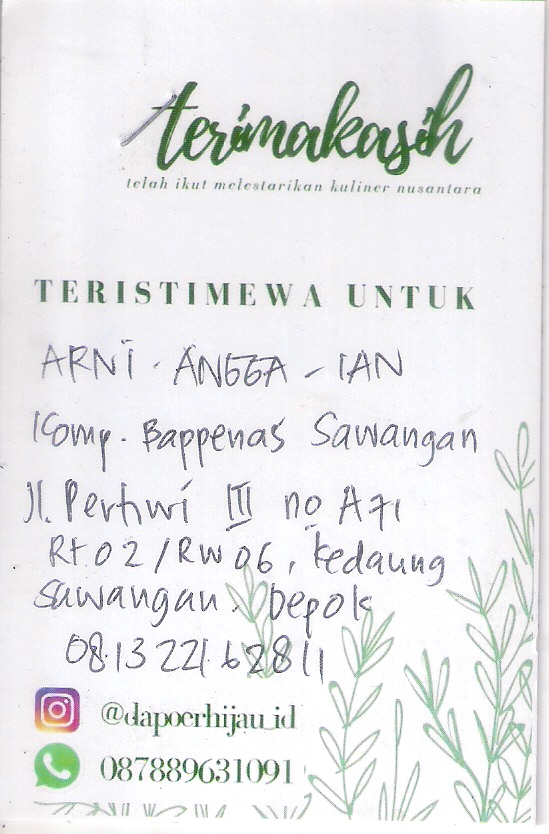 terimakasih
telah ikut melestarikan kuliner nusantara
TERISTIMEWA UNTUK
ARNI - ANGGA - IAN
Komp. Bappenas Sawangan
Jl. Pertiwi III no A71
Rt 02 / RW 06, kedaung
Sawangan. Depok
0813 221 62811
@dapoerhijau_id
087889631091